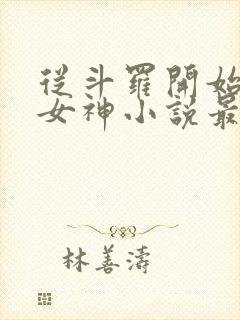 從斗羅開始
女神小說最
林善濤